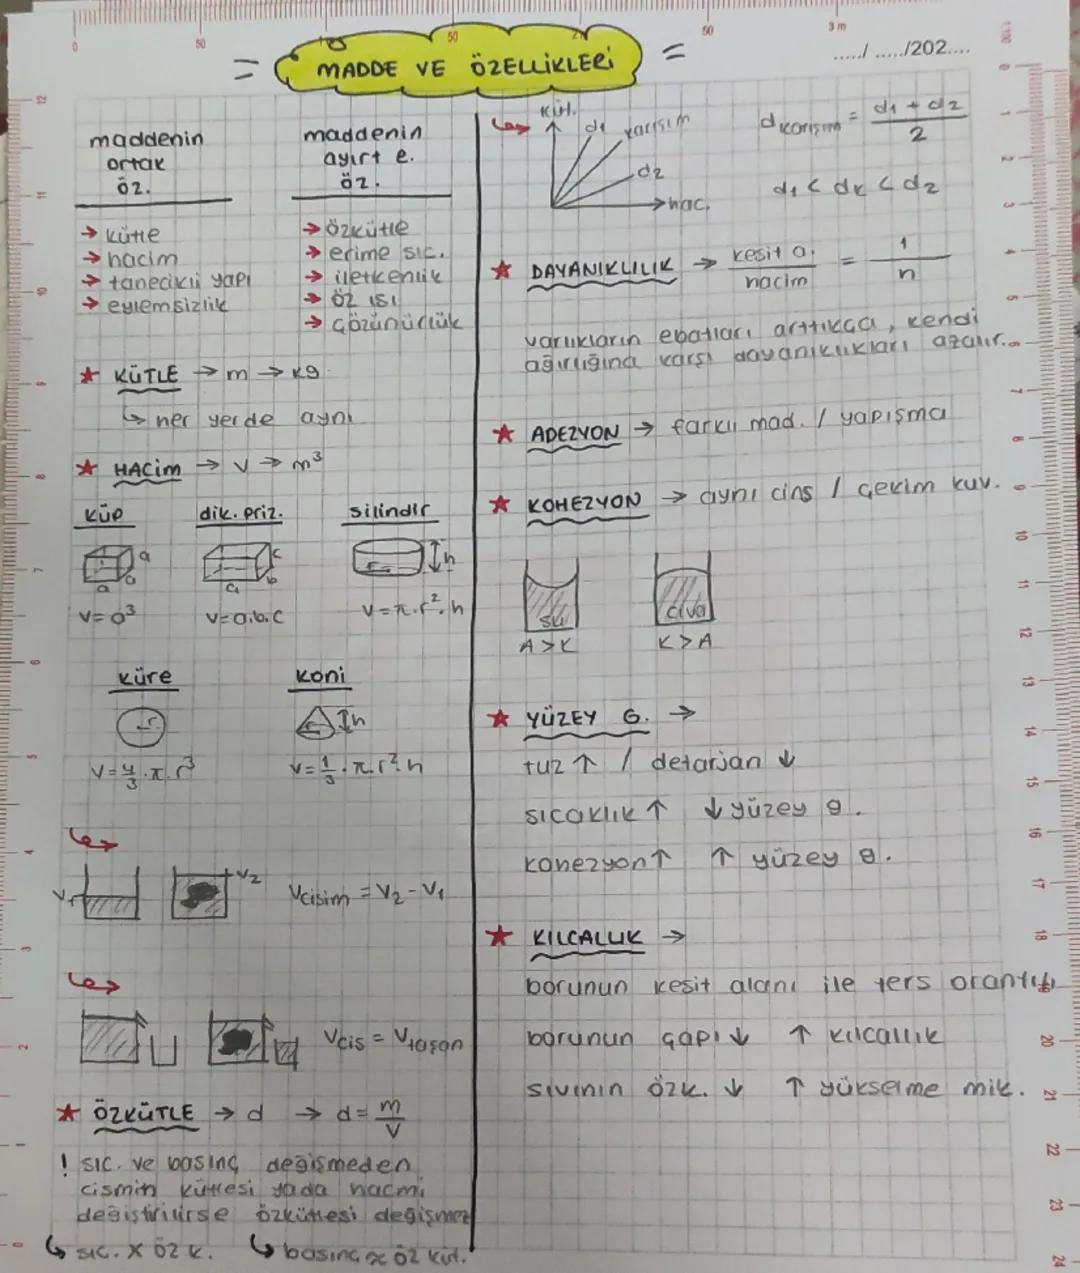 = MADDE VE ÖZELLİKLERİ =
...../...../202....
maddenin
ortak
öz.
→ kütle
→ hacim
→ tanecikli yapı
→ eylemsizlik
maddenin
ayırt e.
öz.
→ özkütle
→ erime sıc.
→ iletkenlik
→ öz ısı
→ çözünürlük
★ KÜTLE → m → kg
↳ her yerde aynı
★ HACİM → v → m³
küp
a
a
a
v=a³
dik. priz.
c
b
a
v=a.b.c
silindir
h
r
v=π.r².h
küre
r
v=4/3.π.r³
koni
h
r
v=1/3.π.r².h
v₁
v₂
Vcisim = V₂-V₁
Vcis = Vtaşan
★ ÖZKÜTLE → d → d=m/v
! sıc. ve basınç değişmeden
cismin kütlesi yada hacmi
değiştirilirse özkütlesi değişmez
↳ sıc. x öz k. ↳ basınç ∝ öz küt.
küt.
d₁
karışım
d₂
hac.
dkarışım = d₁ + d₂ / 2
d₁ < dk < d₂
★ DAYANIKLILIK → kesit a. / hacim = 1 / n
varlıkların ebatları arttıkça, kendi
ağırlığına karşı dayanıklılıkları azalır.
★ ADEZYON → farklı mad. / yapışma
★ KOHEZYON → aynı cins / çekim kuv.
su
A>K
civa
K>A
★ YÜZEY G. →
tuz ↑ / detarjan ↓
sıcaklık ↑ ↓ yüzey g.
kohezyon ↑ ↑ yüzey g.
★ KILCALLIK →
borunun kesit alanı ile ters orantılı
borunun çapı ↓ ↑ kılcallık
sıvının özk. ↓ ↑ yükselme mik.